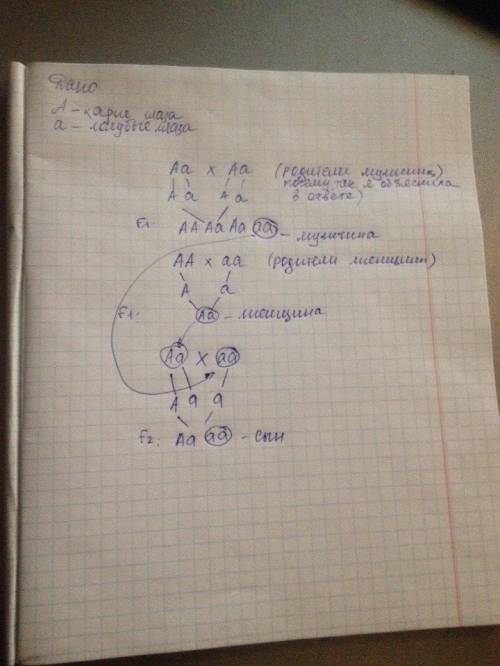 Дано
А – карие глаза
а – голубые глаза
Аа х Аа (родители мужчины)
А а А а почему так я объяснила
в ответе)
F1. АА Аа Аа аа – мужчина
АА х аа (родители женщины)
А а
F1. Аа – женщина
Аа х аа
А а а
F2: Аа аа – сын